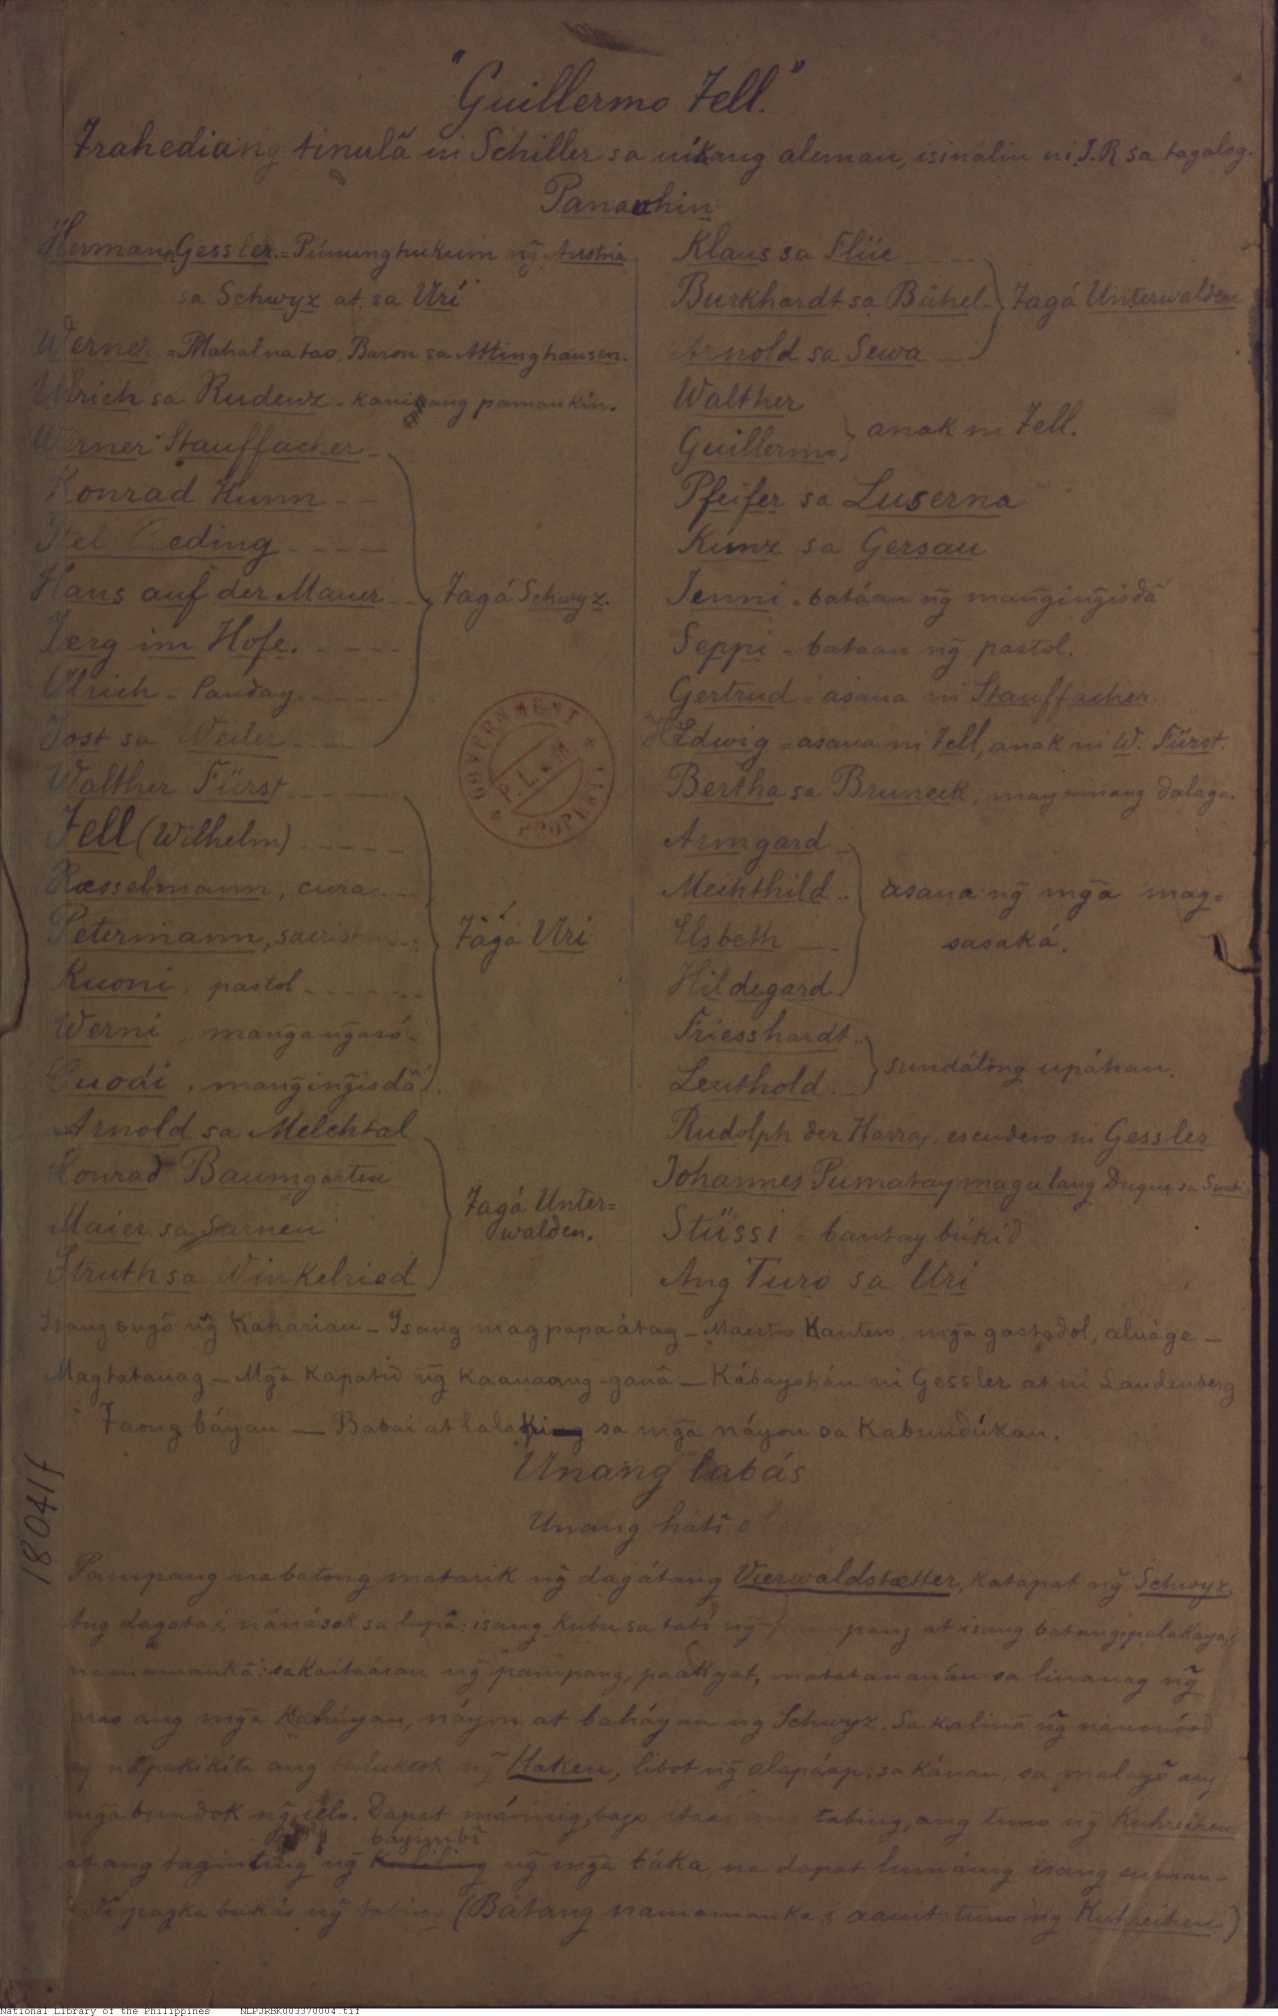 "Guillermo Tell."
Trahediang tinulã ni Schiller sa wikang aleman, isinalin ni J.R sa tagalog.
Panauhin
Herman Gessler = Púnunghukum ng̃ Austria
sa Schwyz at sa Uri
Werner = Mahal na tao, Baron sa Attinghausen.
Ulrich sa Rudenz - kaniyang pamankin.
Werner Stauffacher
Konrad Hunn
Itel Reding
Hans auf der Mauer
Jerg im Hofe.
Ulrich - Panday
Jost sa Weiler
Tagá Schwyz.
Walther Fürst
Tell (Wilhelm)
Rœsselmann, cura
Petermann, sacristan
Kuoni, pastol
Werni, mang̃ang̃asó
Ruodi, mang̃ing̃isdã
Tagá Uri
Arnold sa Melchtal
Konrad Baumgarten
Maier sa Sarnen
Struth sa Winkelried
Tagá Unter=
walden.
Klaus sa Flüe
Burkhardt sa Bühel
Arnold sa Sewa
Tagá Unterwalden
Walther
Guillermo
anak ni Tell.
Pfeifer sa Luserna
Kunz sa Gersau
Jenni - batáan ng̃ mang̃ing̃isdã
Seppi - bataan ng̃ pastol.
Gertrud - asaua ni Stauffacher.
Hedwig = asaua ni Tell, anak ni W. Fürst.
Bertha sa Bruneck, mayamang dalaga.
Armgard
Mechthild
Elsbeth
Hildegard
asaua ng̃ mg̃a mag=
sasaká.
Friesshardt
Leuthold
sundálong upáhan.
Rudolph der Harras, escudero ni Gessler
Johannes Pumatay magulang Duque sa Suabi
Stüssi - bantay búkid
Ang Turo sa Uri
Isang sugõ ng̃ Kaharian - Isang magpapaátag - Maestro Kantero, mg̃a gastadol, aluáge -
Magtatauag - Mg̃a Kapatid ng̃ kaauaang-gauã - Kábayohán ni Gessler at ni Landenberg
Taong báyan - Babai at lalaki sa mg̃a náyon sa Kabundúkan.
Unang labás
Unang hati
Pampang na batong matarik ng̃ dagátang Vierwaldstætter, katapat ng̃ Schwyz
Ang dagata'i nánások sa lupã: isang kubu sa tabi ng̃ pampang at isang batang palakaya'i
namamankã: sa kaitaásan ng̃ pampang, paakyat, matatanauán sa linanag ng̃
arao ang mg̃a Kahúyan, náyon at baháyan ng Schwyz. Sa kaliuã ng̃ nanonóod
ay nápakikita ang taluktok ng̃ Haken, libot ng̃ alapáap; sa kánan, sa malayõ ang
mg̃a bundok ng̃ ielo. Dapat márinig, bago itaas ang tabing, ang tuno ng̃ Kuhreihen
bayimbi
at ang taginting ng̃ Kuliling ng̃ mg̃a báka, na dapat lumáuig isang
pagka bukás ng̃ tabing (Batang namamanka'i aauit tuno ng Kuhreihen)
GOVERNMENT PROPERTY
P.L. & M
18041f
National Library of the Philippines NLPJRBK003370004.tif